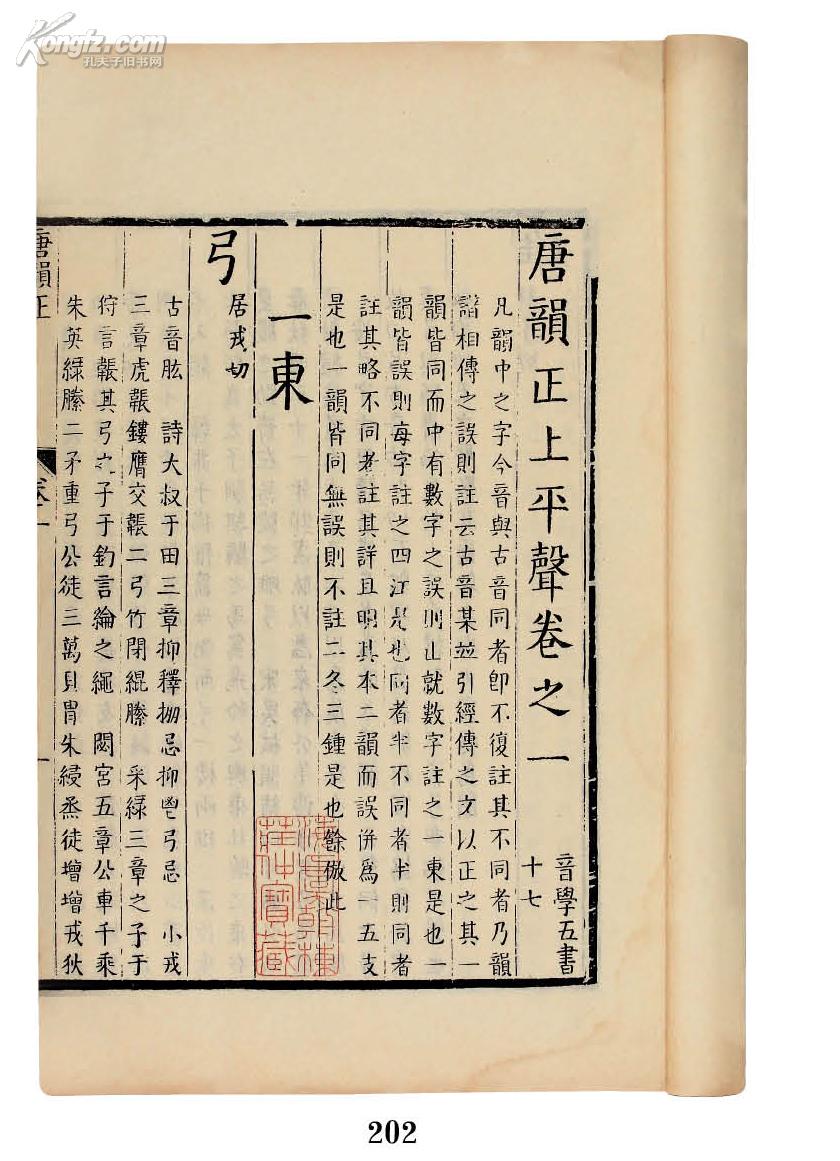 Kongfz.com
孔夫子旧书网
唐韻正上平聲卷之一
音學五書
十七
凡韻中之字今音與古音同者卽不復註其不同者乃韻
譜相傳之誤則註云古音某並引經傳之文以正之其一
韻皆同而中有數字之誤則止就數字註之一東是也一
韻皆誤則每字註之四江是也同者半不同者半則同者
註其略不同者註其詳且明其本二韻而誤併爲一五支
是也一韻皆同無誤則不註二冬三鍾是也餘倣此
一東
弓
居戎切
古音肱 詩大叔于田三章抑釋掤忌抑鬯弓忌 小戎
三章虎韔鏤膺交韔二弓竹閉緄縢 采綠三章之子于
狩言韔其弓之子于釣言綸之繩 閟宮五章公車千乘
朱英綠縢二矛重弓公徒三萬貝冑朱綅烝徒增增戎狄
唐韻正
卷一
一
莊仲寶藏
202